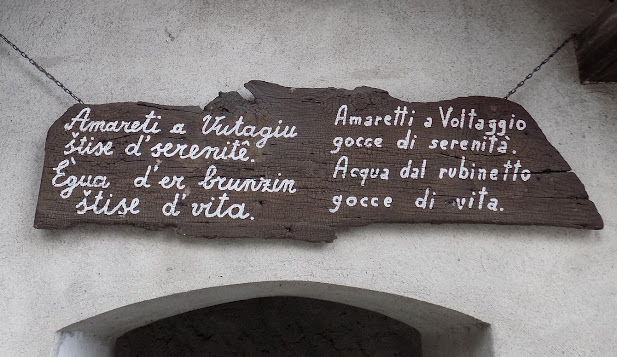 Amareti a Vutagiu
štise d'serenitê.
Ègua d'er brunzin
štise d'vita.
Amaretti a Voltaggio
gocce di serenità.
Acqua dal rubinetto
gocce di vita.